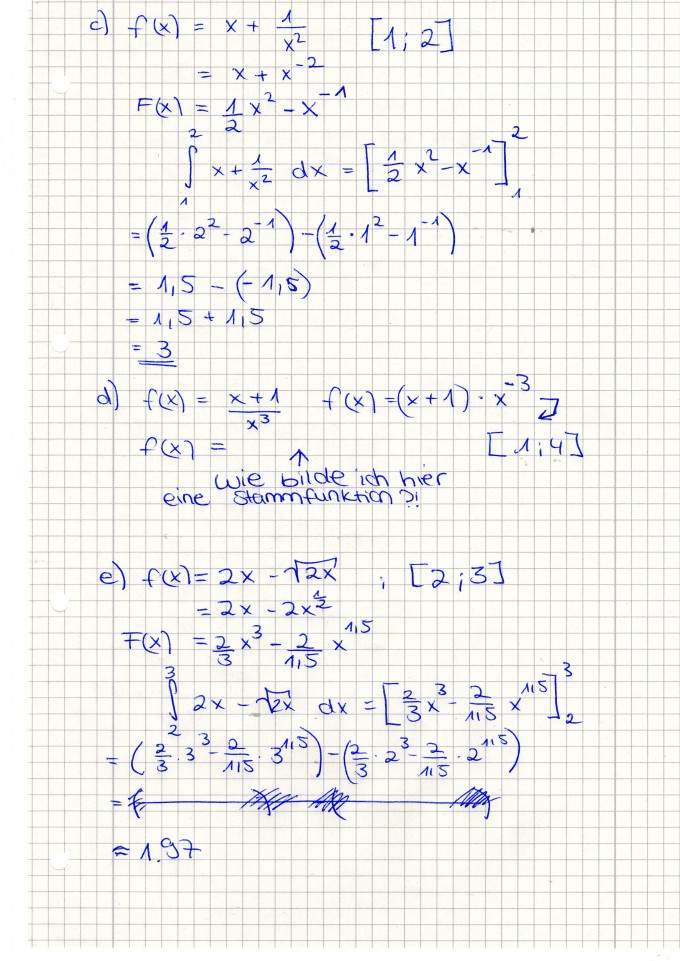 c) f(x) = x + 1/x² [1; 2]
= x + x⁻²
F(x) = 1/2 x² - x⁻¹
∫₁² x + 1/x² dx = [1/2 x² - x⁻¹]₁²
= (1/2 · 2² - 2⁻¹) - (1/2 · 1² - 1⁻¹)
= 1,5 - (-1,5)
= 1,5 + 1,5
= 3
d) f(x) = (x+1)/x³ f(x) = (x+1) · x⁻³
f(x) = ↑ [1; 4]
Wie bilde ich hier
eine Stammfunktion?!
e) f(x) = 2x - √2x ; [2; 3]
= 2x - 2x^(1/2)
F(x) = 2/3 x³ - 2/1,5 x^1,5
∫₂³ 2x - √2x dx = [2/3 x³ - 2/1,5 x^1,5]₂³
= (2/3 · 3³ - 2/1,5 · 3^1,5) - (2/3 · 2³ - 2/1,5 · 2^1,5)
=
≈ 1.97